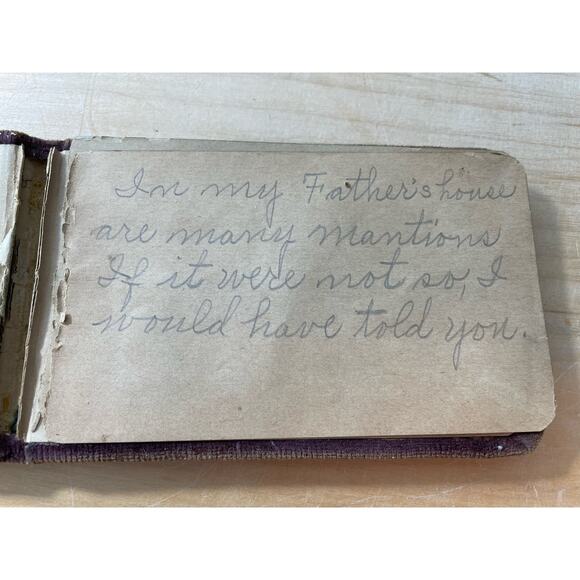 In my Father's house
are many mantions
If it were not so, I
would have told you.